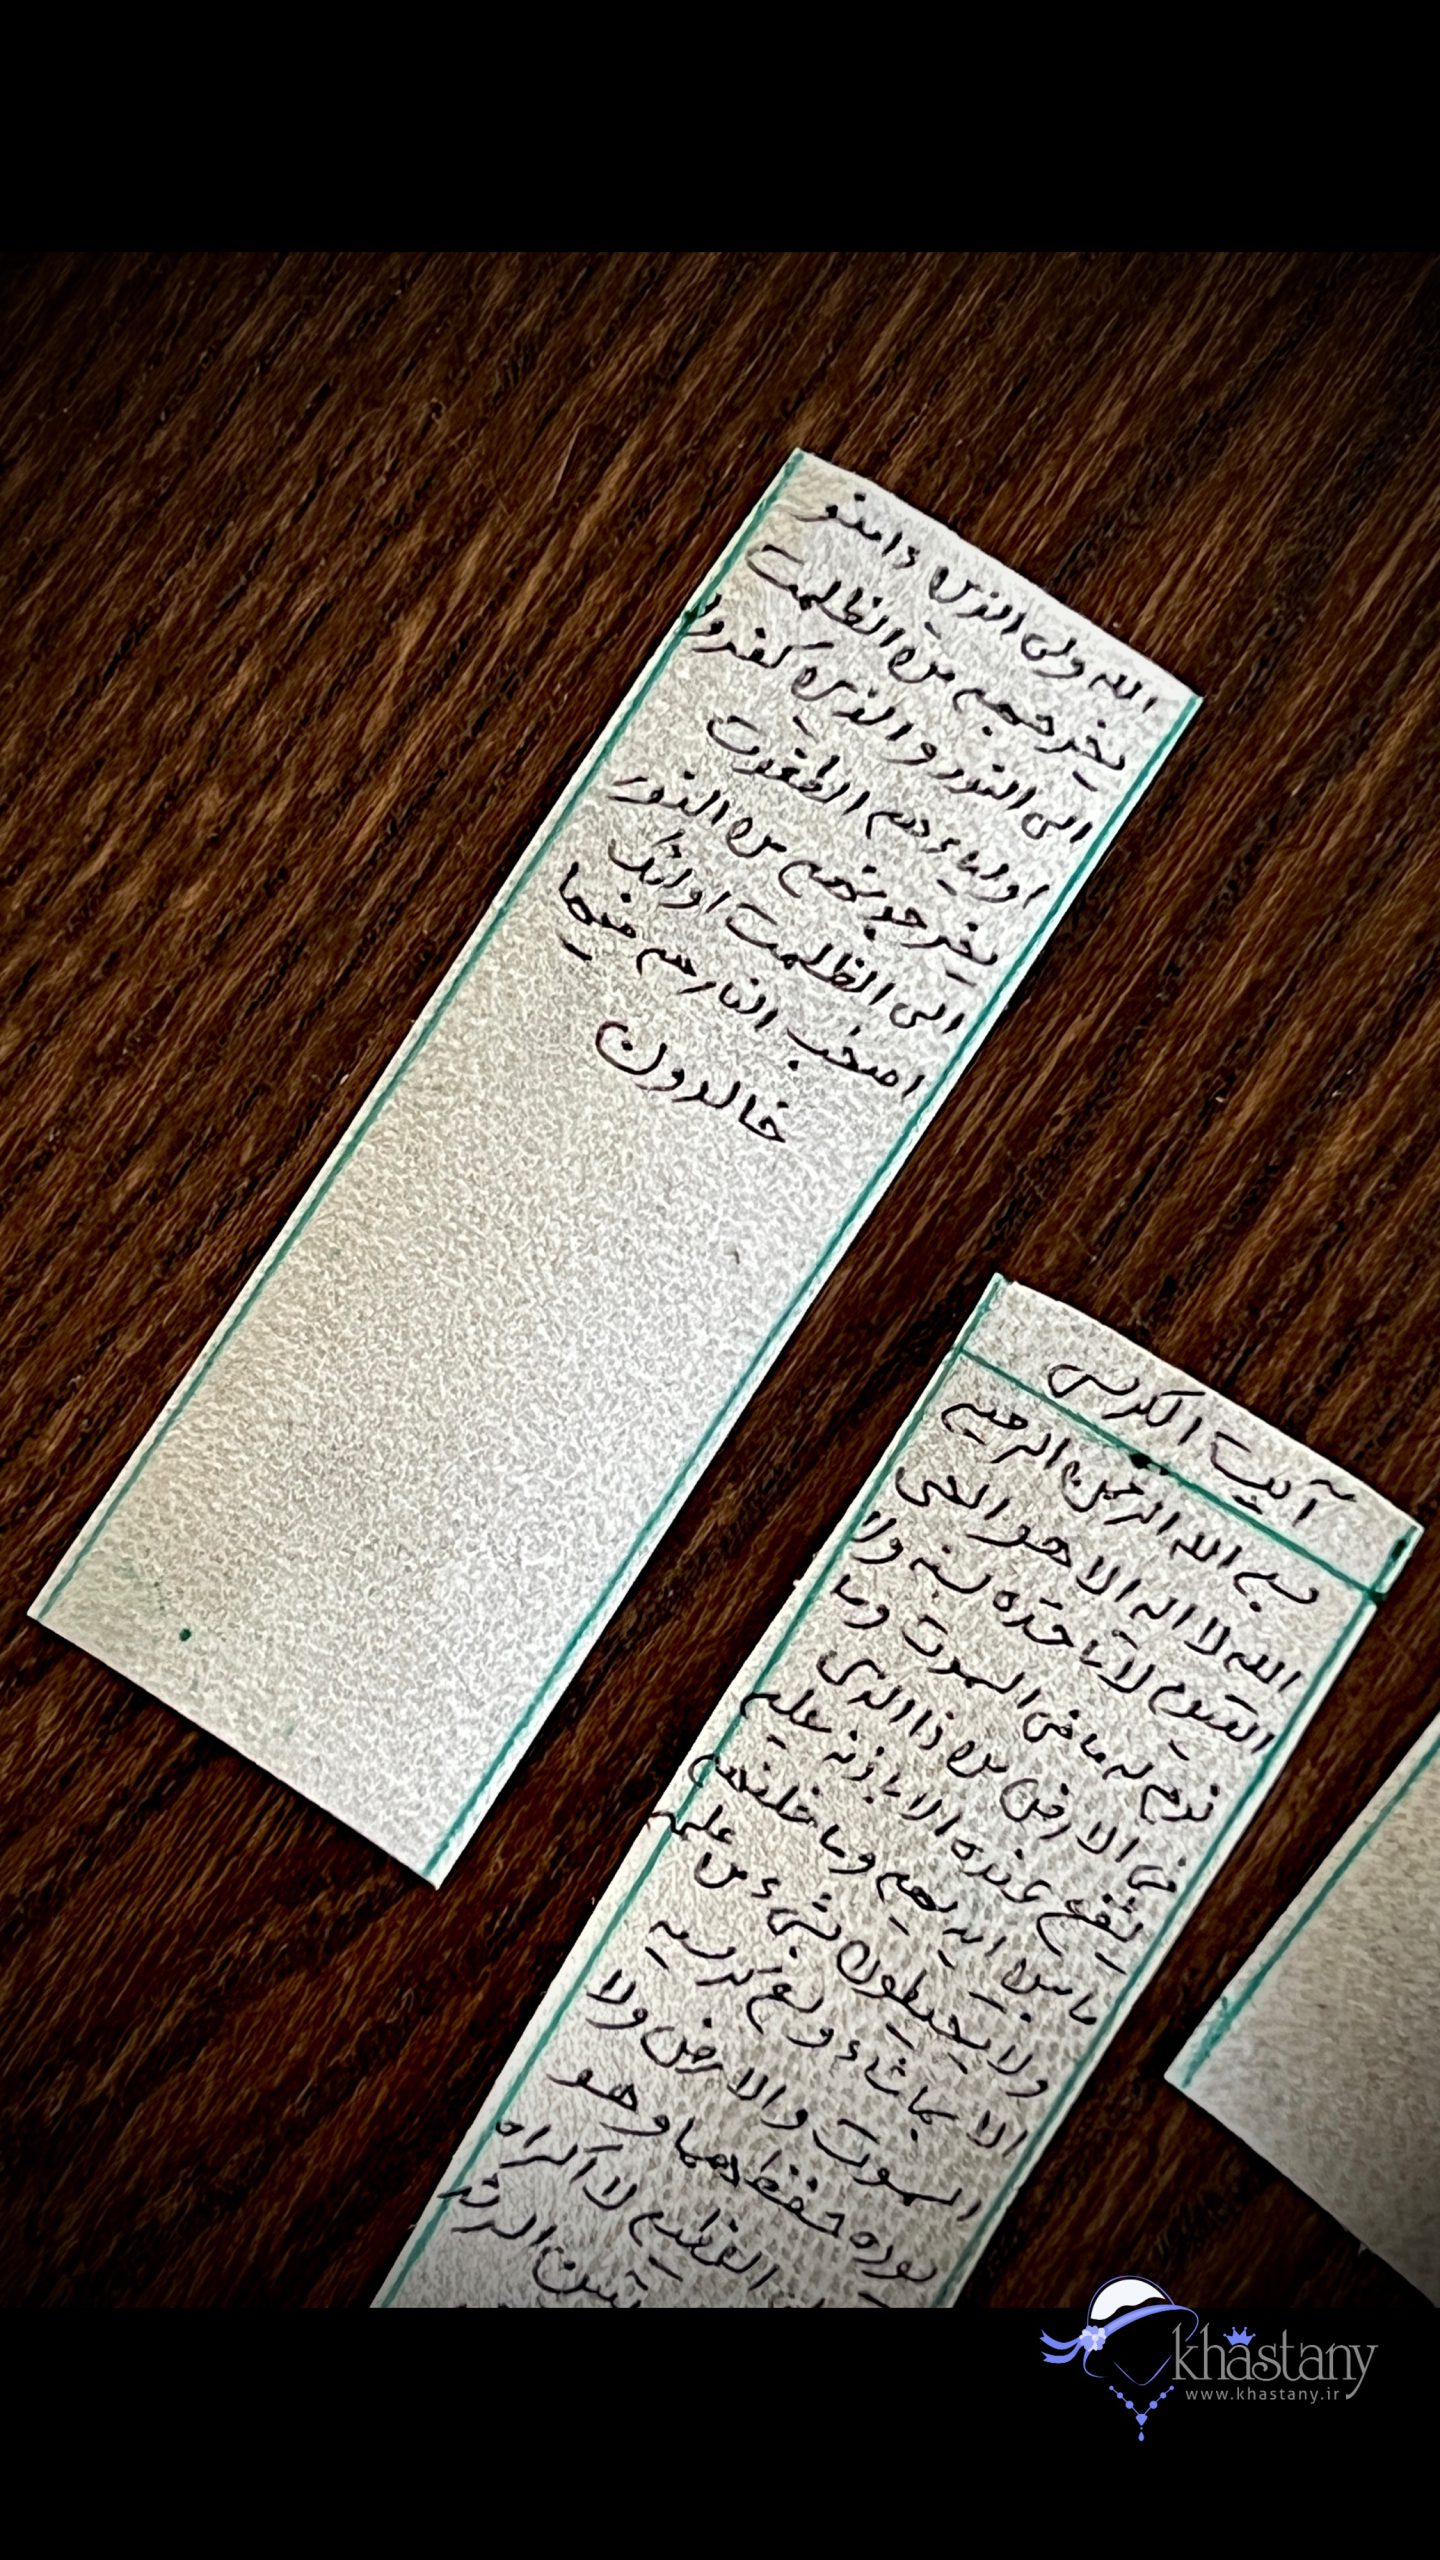 الله ولی الذین ءامنو
یخرجهم من الظلمت
الی النور و الذین کفرو
اولیاءهم الطغوت
یخرجونهم من النور
الی الظلمت اولئک
اصحب النار هم فیها
خالدون
آیت الکرسی
بسم الله الرحمن الرحیم
الله لا اله الا هو الحی
القیوم لا تاخذه سنه ولا
نوم له ما فی السموت وما
فی الارض من ذا الذی
یشفع عنده الا باذنه علیم
ما بین ایدیهم وما خلفهم
ولا یحیطون بشیء من علمه
الا بماشاء وسع کرسیه
السموت والارض ولا
یوده حفظهما وهو
العظیم لا اکراه
تبین الرشد
khastany
www.khastany.ir